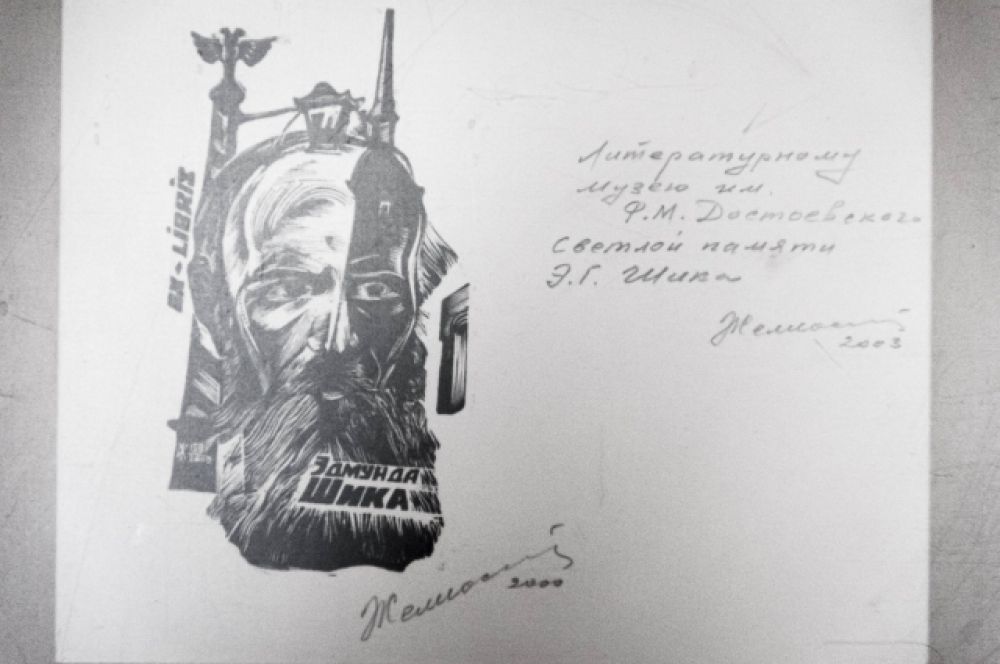 EX-LIBRIS
ЭДМУНДА
ШИКА
2000
Литературному
музею им.
Ф.М. Достоевского
Светлой памяти
Э.Г. Шика
2003